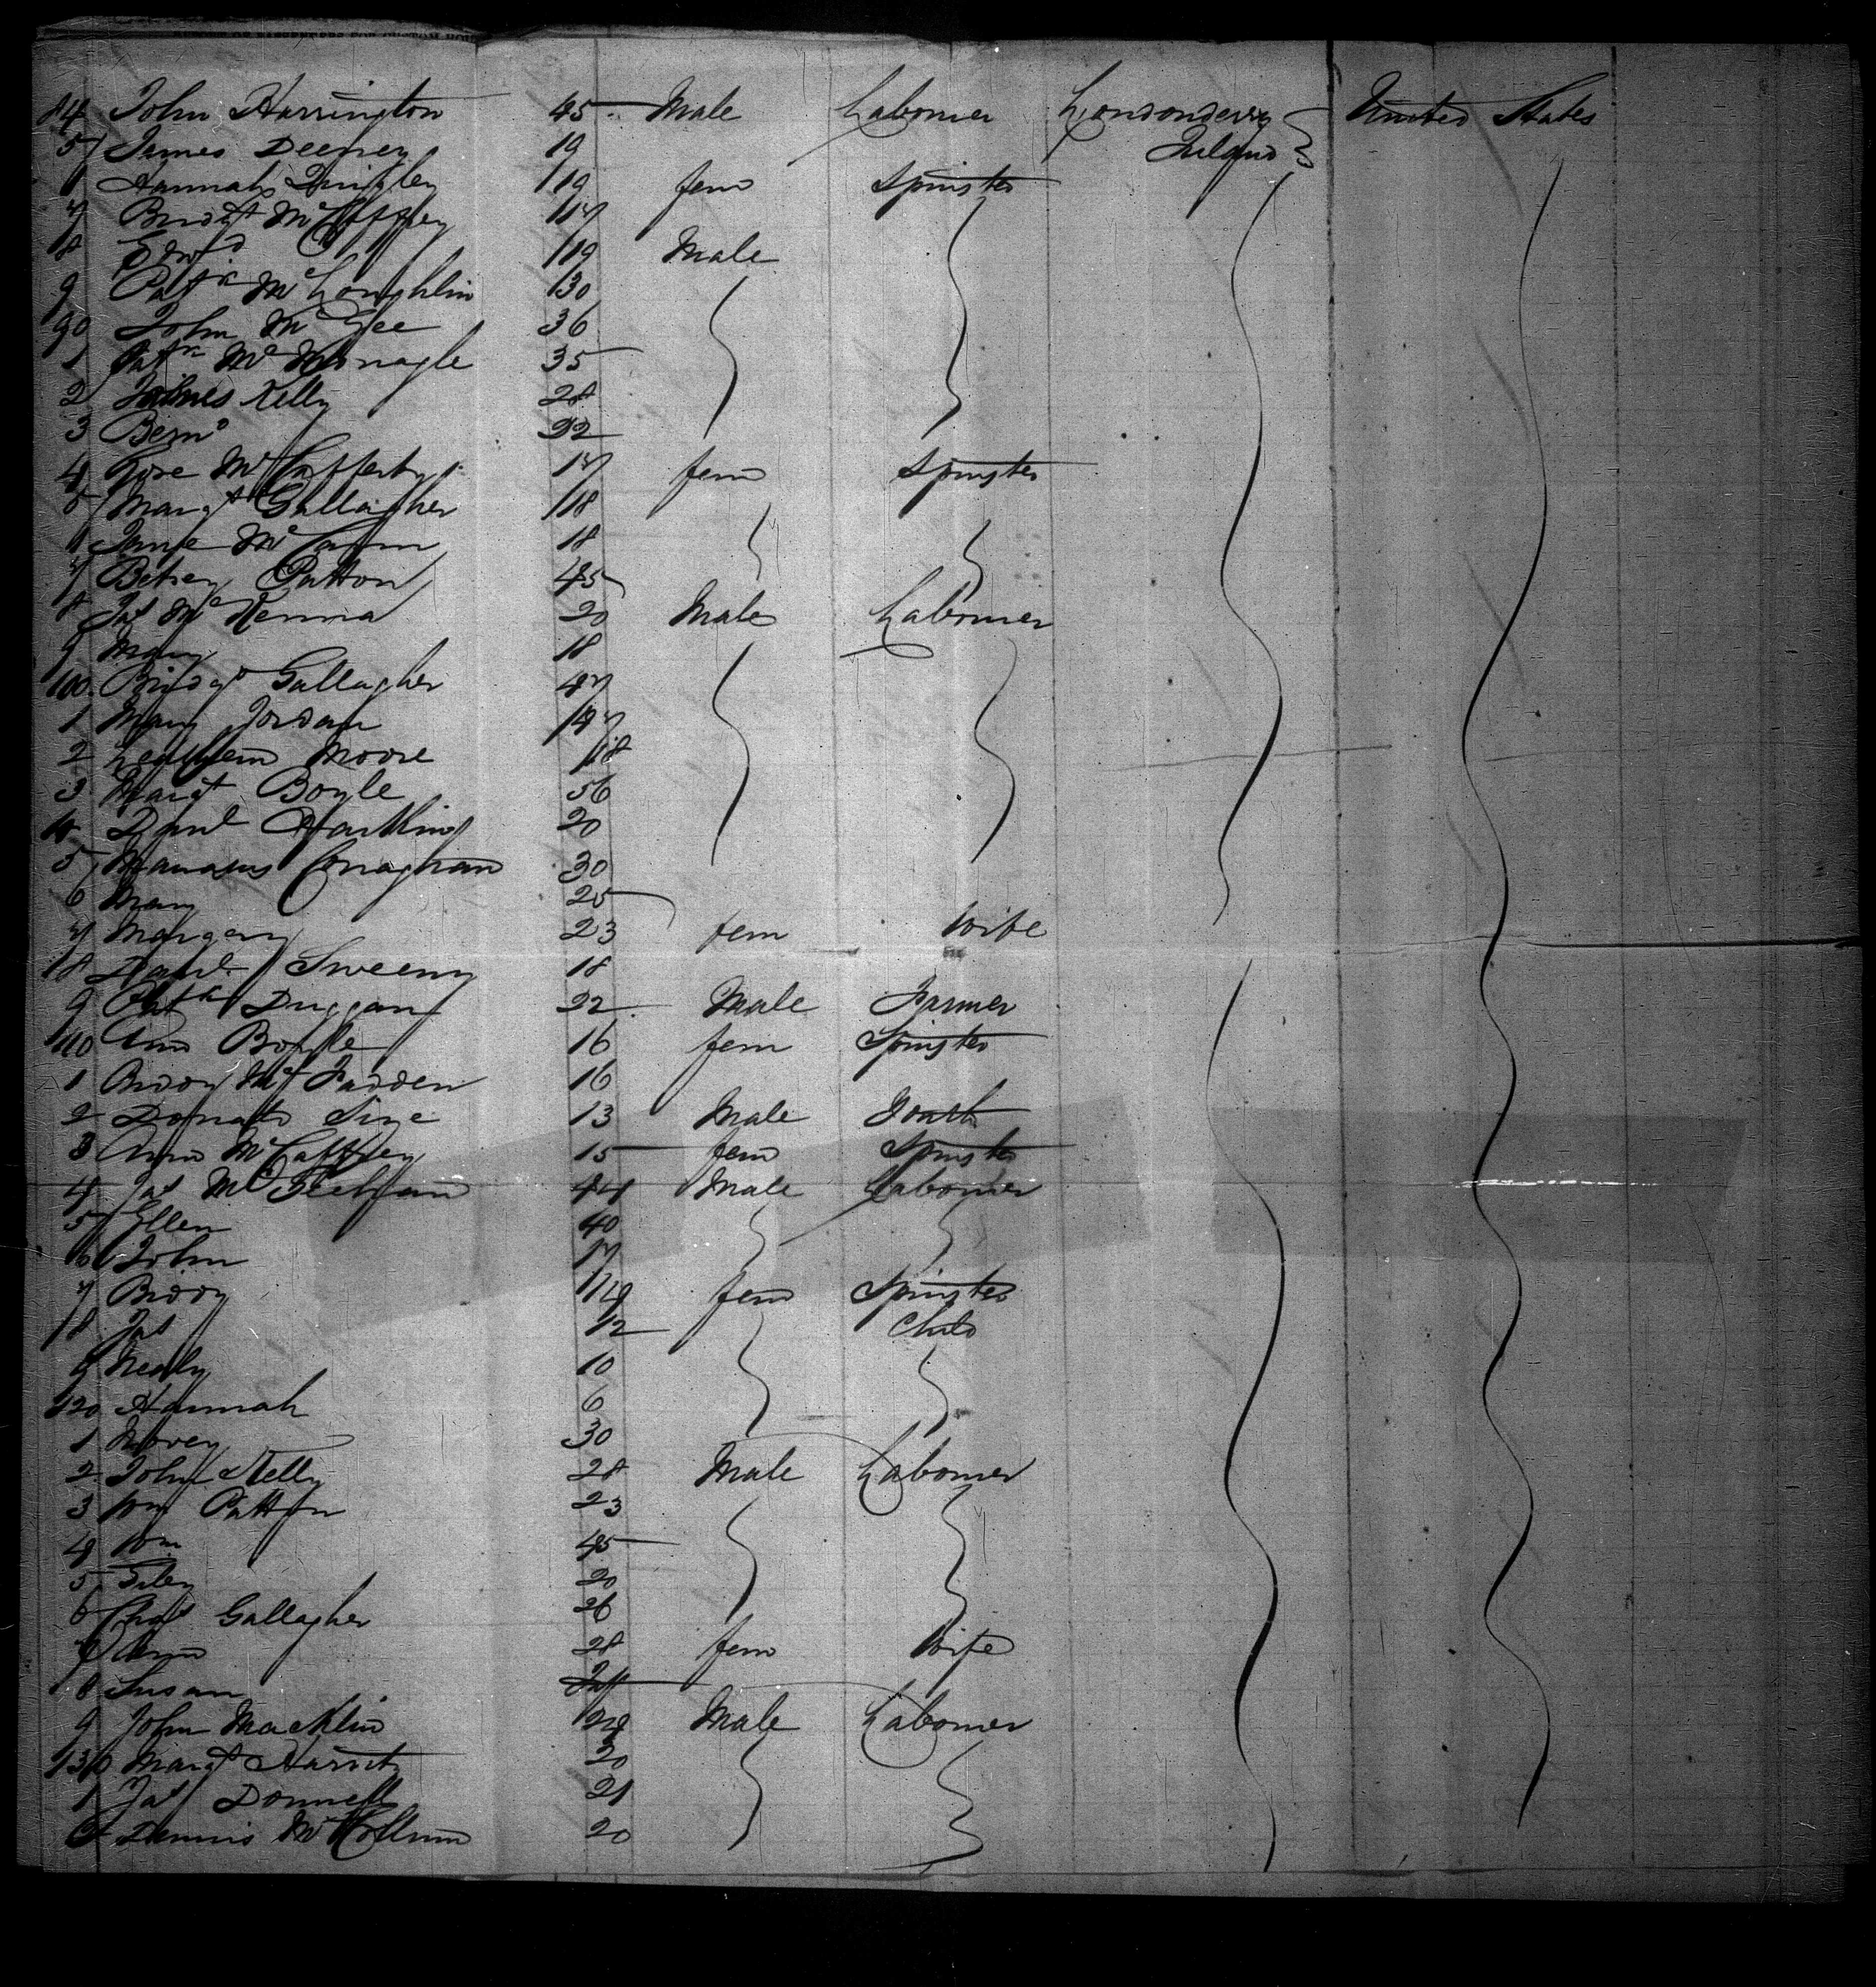 84 John Harrington 45 Male Labourer Londonderry United States
5 James Deeney 19 Ireland
6 Hannah Quigley 19 fem Spinster
7 Bridgt McCaffrey 17
8 Edwd 19 Male
9 Patk McLoughlin 30
90 John McGee 36
1 Patk McMonagle 35
2 James Kelly 28
3 Bernd 22
4 Rose McCafferty 17 fem Spinster
5 Margt Gallagher 18
6 Jane McCann 18
7 Betsey Patton 45
8 Jas McKenna 20 Male Labourer
9 Mary 18
100 Bridgt Gallagher 47
1 Mary Jordan 19
2 Moore 18
3 Margt Boyle 56
4 Danl Harkin 20
5 Manasus Conaghan 30
6 Mary 25
7 Margery 23 fem Wife
8 Danl Sweeny 18
9 Patk Duggan 22 Male Farmer
110 Ann Boyle 16 fem Spinster
1 Biddy McFadden 16
2 Donald 13 Male
3 Ann McCaffrey 15 fem Spinster
4 Jas McGeehan 44 Male Labourer
5 Ellen 40
6 John 17
7 Biddy 14 fem Spinster
8 Jas 12 Child
9 Nealy 10
120 Hannah 6
1 30
2 John Kelly 28 Male Labourer
3 Wm Patton 23
4 Wm 45
5 20
6 Chas Gallagher 26
7 Ann 28 fem Wife
8 Susan
9 John Macklin 24 Male Labourer
130 Margt 20
1 Jas Donnell 21
2 Dennis McCollum 20